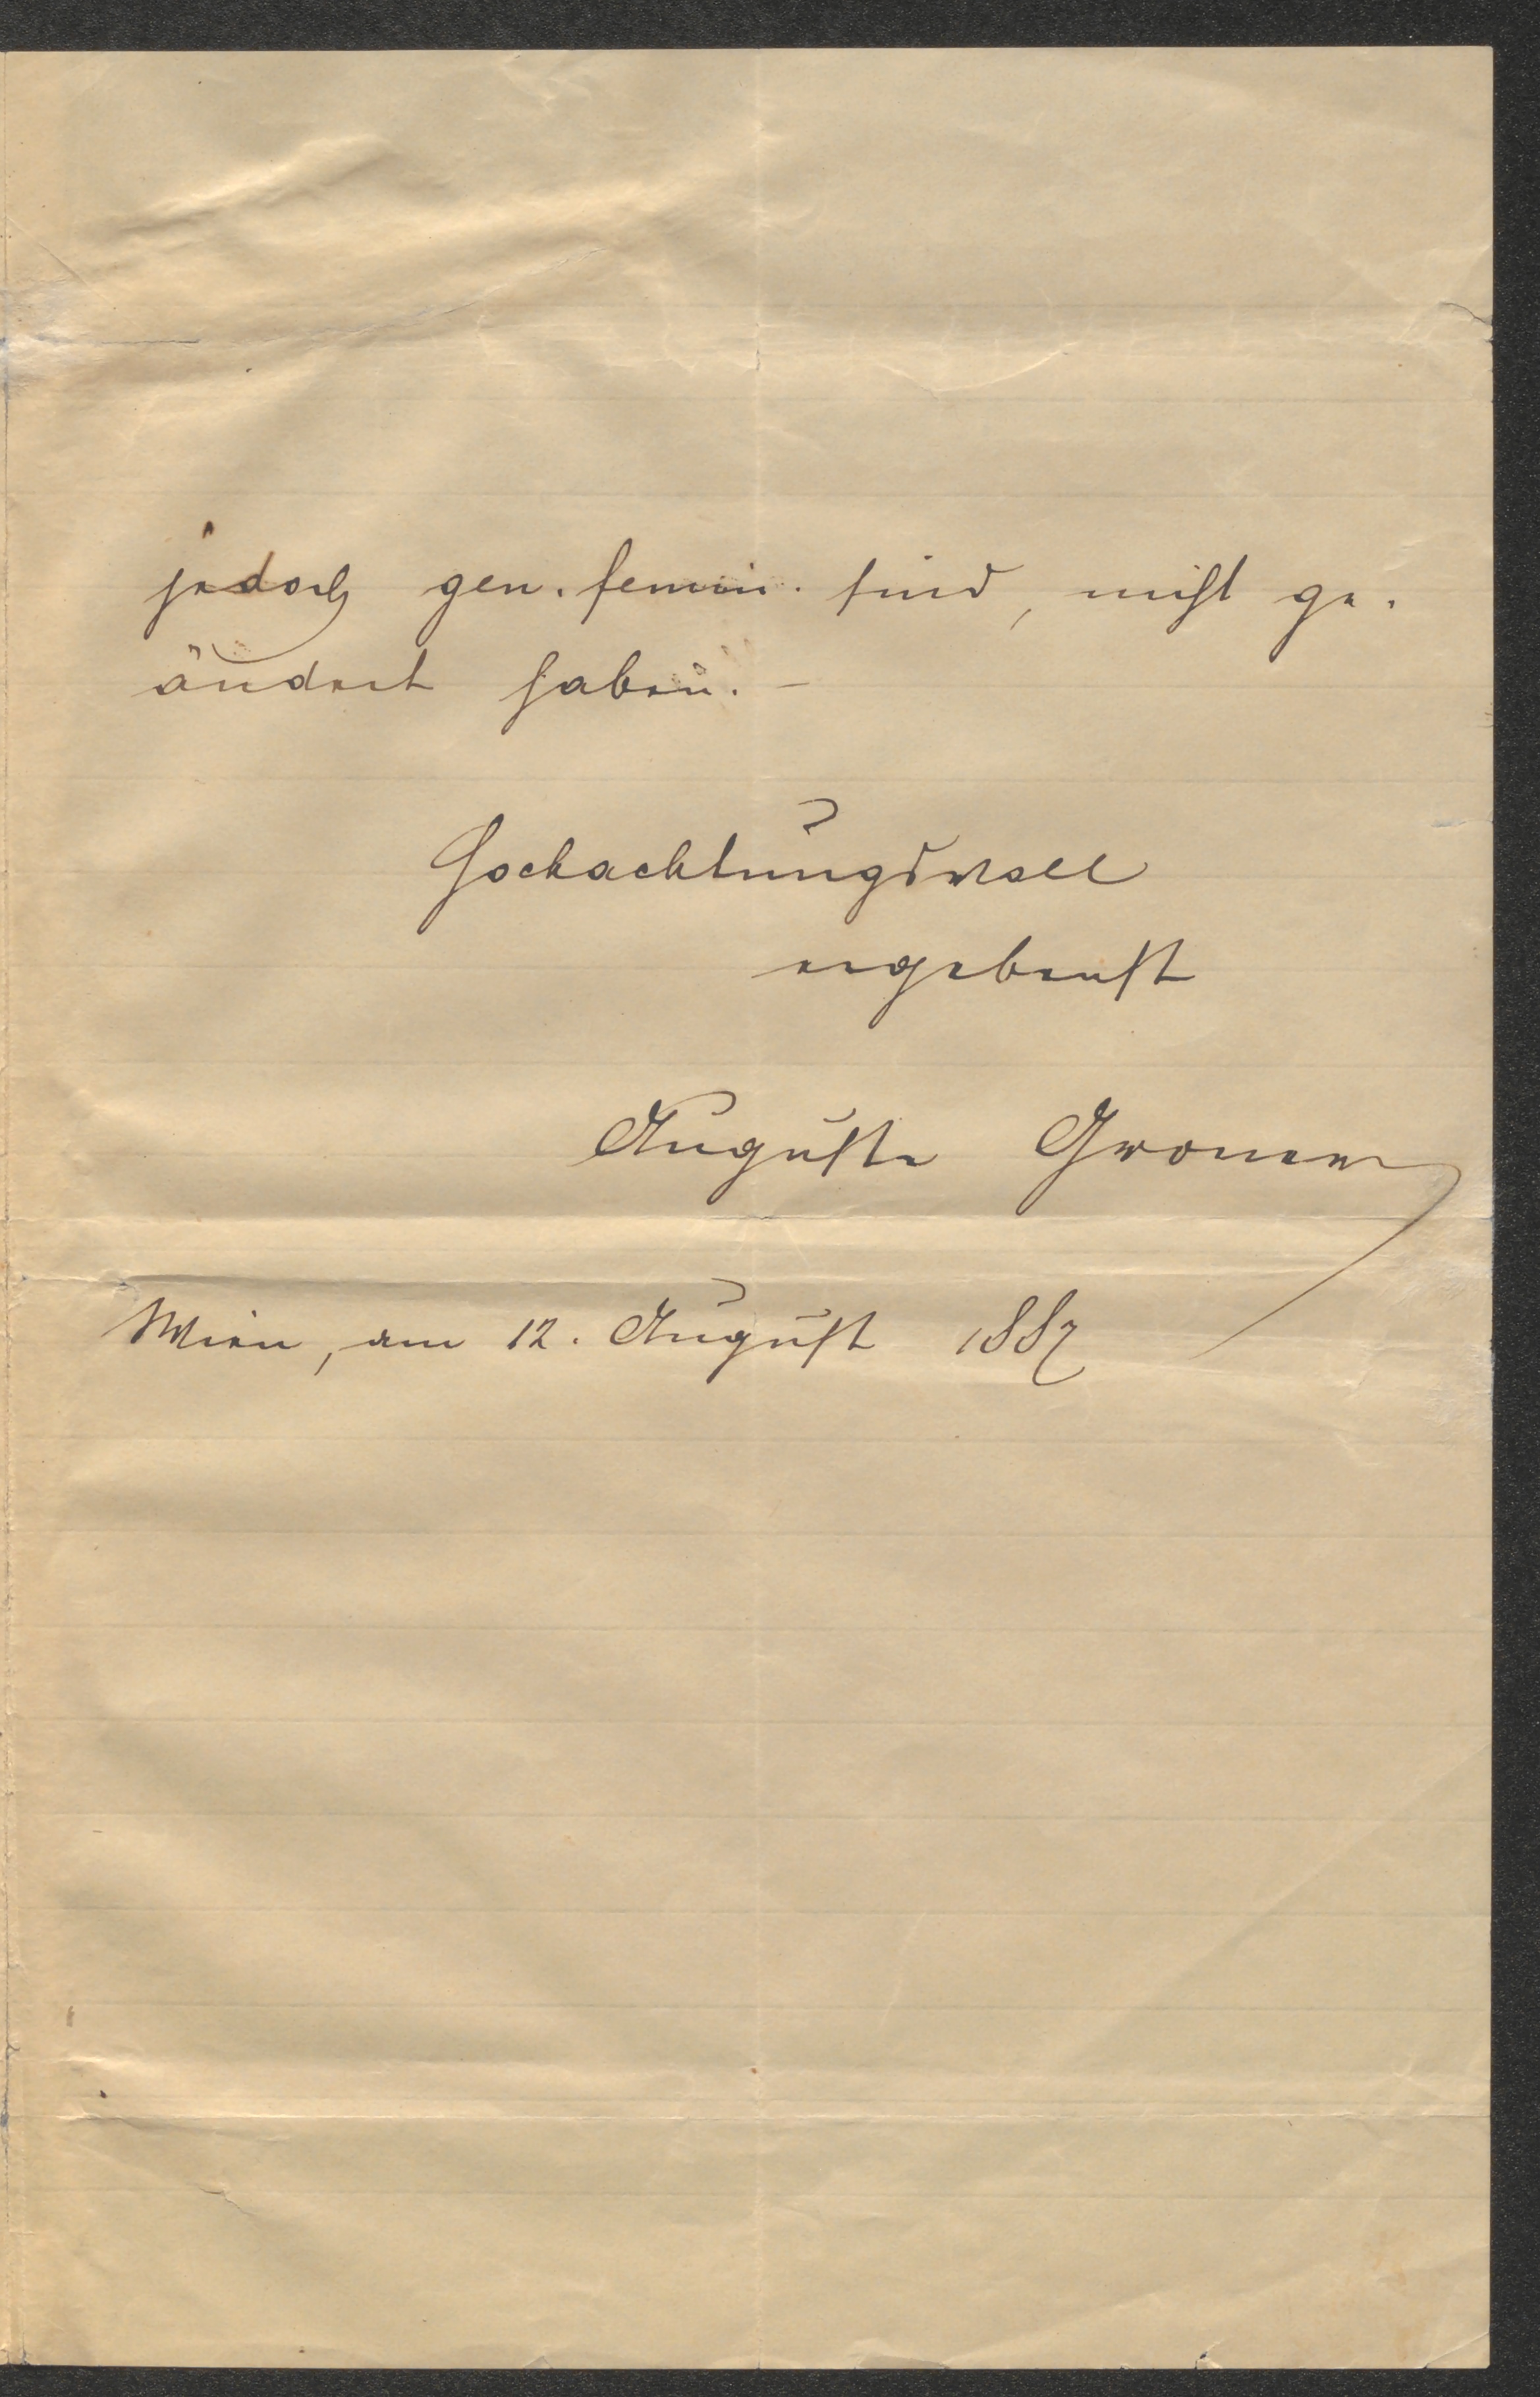 jedoch gen. femin. sind, nicht ge-
ändert haben. –
Hochachtungsvoll
ergebenst
Auguste Groner
Wien, am 12. August 1887